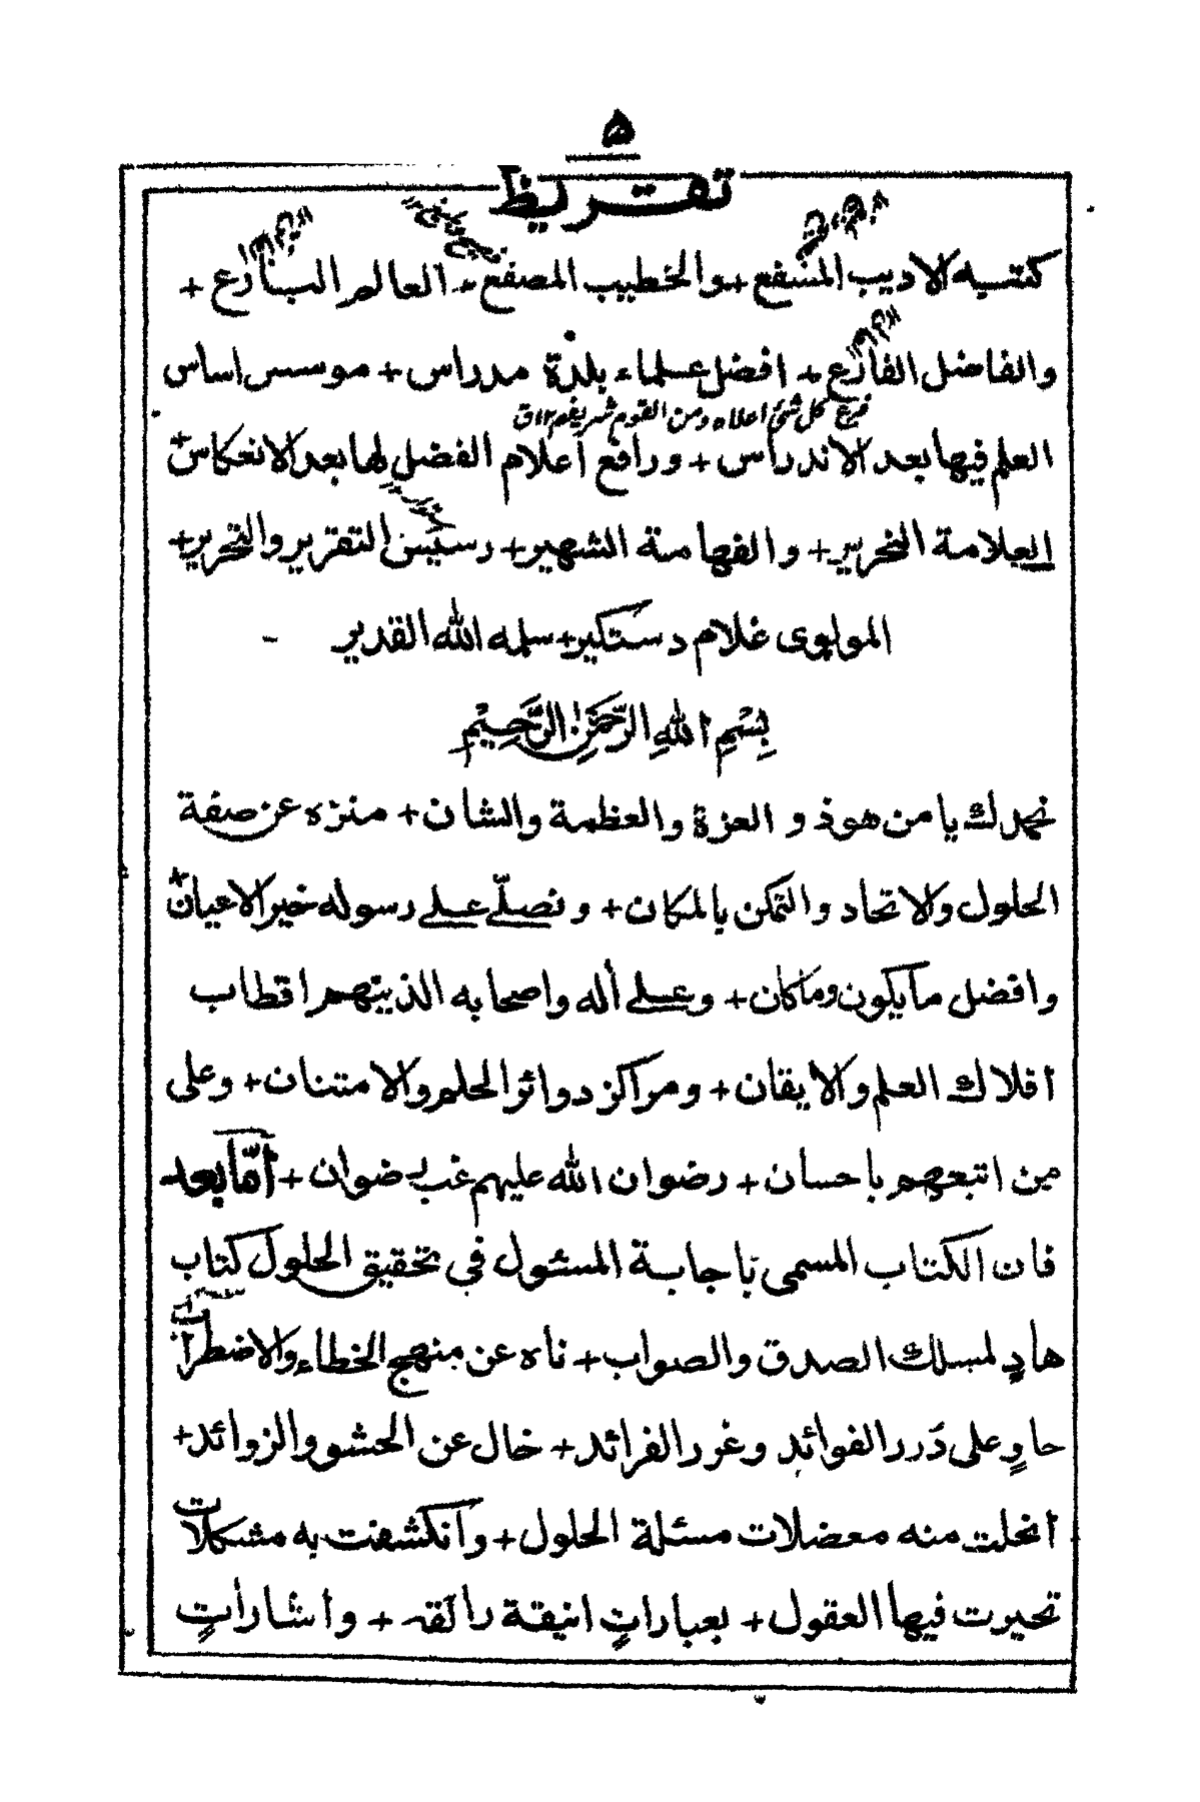 ۵
تقريظ
كتبه الاديب المشفع + والخطيب المصقع + العالم البارع +
والفاضل الفارع + افضل علماء بلدة مدراس + موسس اساس
فرع كل شئ اعلاه ومن القوم شريفهم ١٢ ق
العلم فيها بعد الاندراس + ورافع اعلام الفضل لها بعد الانعكاس +
العلامة النحرير + والفهامة الشهير + رئيس التقرير والتحرير +
المولوى غلام دستكير + سلمه الله القدير
بِسْمِ اللهِ الرَّحْمٰنِ الرَّحِيْمِ
نحمدك يا من هو ذو العزة والعظمة والشان + منزه عن صفة
الحلول والاتحاد والتمكن بالمكان + ونصلّے علے رسوله خير الاعيان +
وافضل ما يكون وما كان + وعلے أله واصحابه الذينهم اقطاب
افلاك العلم والايقان + ومراكز دوائر الحلم والامتنان + وعلى
من اتبعهم باحسان + رضوان الله عليهم غب رضوان + أمّا بعد
فان الكتاب المسمى باجابة المسئول في تحقيق الحلول كتاب
هادٍ لمسلك الصدق والصواب + ناه عن منهج الخطاء والاضطراب
حاوٍ على دَرر الفوائد وغرر الفرائد + خال عن الحشو والزوائد +
انحلت منه معضلات مسئلة الحلول + وانكشفت به مشكلات
تحيرت فيها العقول + بعباراتٍ انيقة رائقه + واشاراتٍ